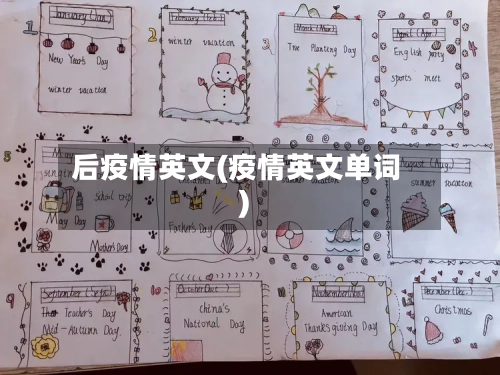 January (Jan.)
New Year's Day
winter vacation
2
winter vacation
3
March (Mar.)
Tree Planting Day
4
April (Apr.)
English party
sports meet
后疫情英文(疫情英文单词
)
school trip
May Day
Mother's Day
Father's Day
August (Aug.)
summer vacation
9
September (Sept.)
Teacher's Day
Mid-Autumn Day
10
October (Oct.)
China's
National Day
American
Thanksgiving Day
December (Dec.)
Christmas